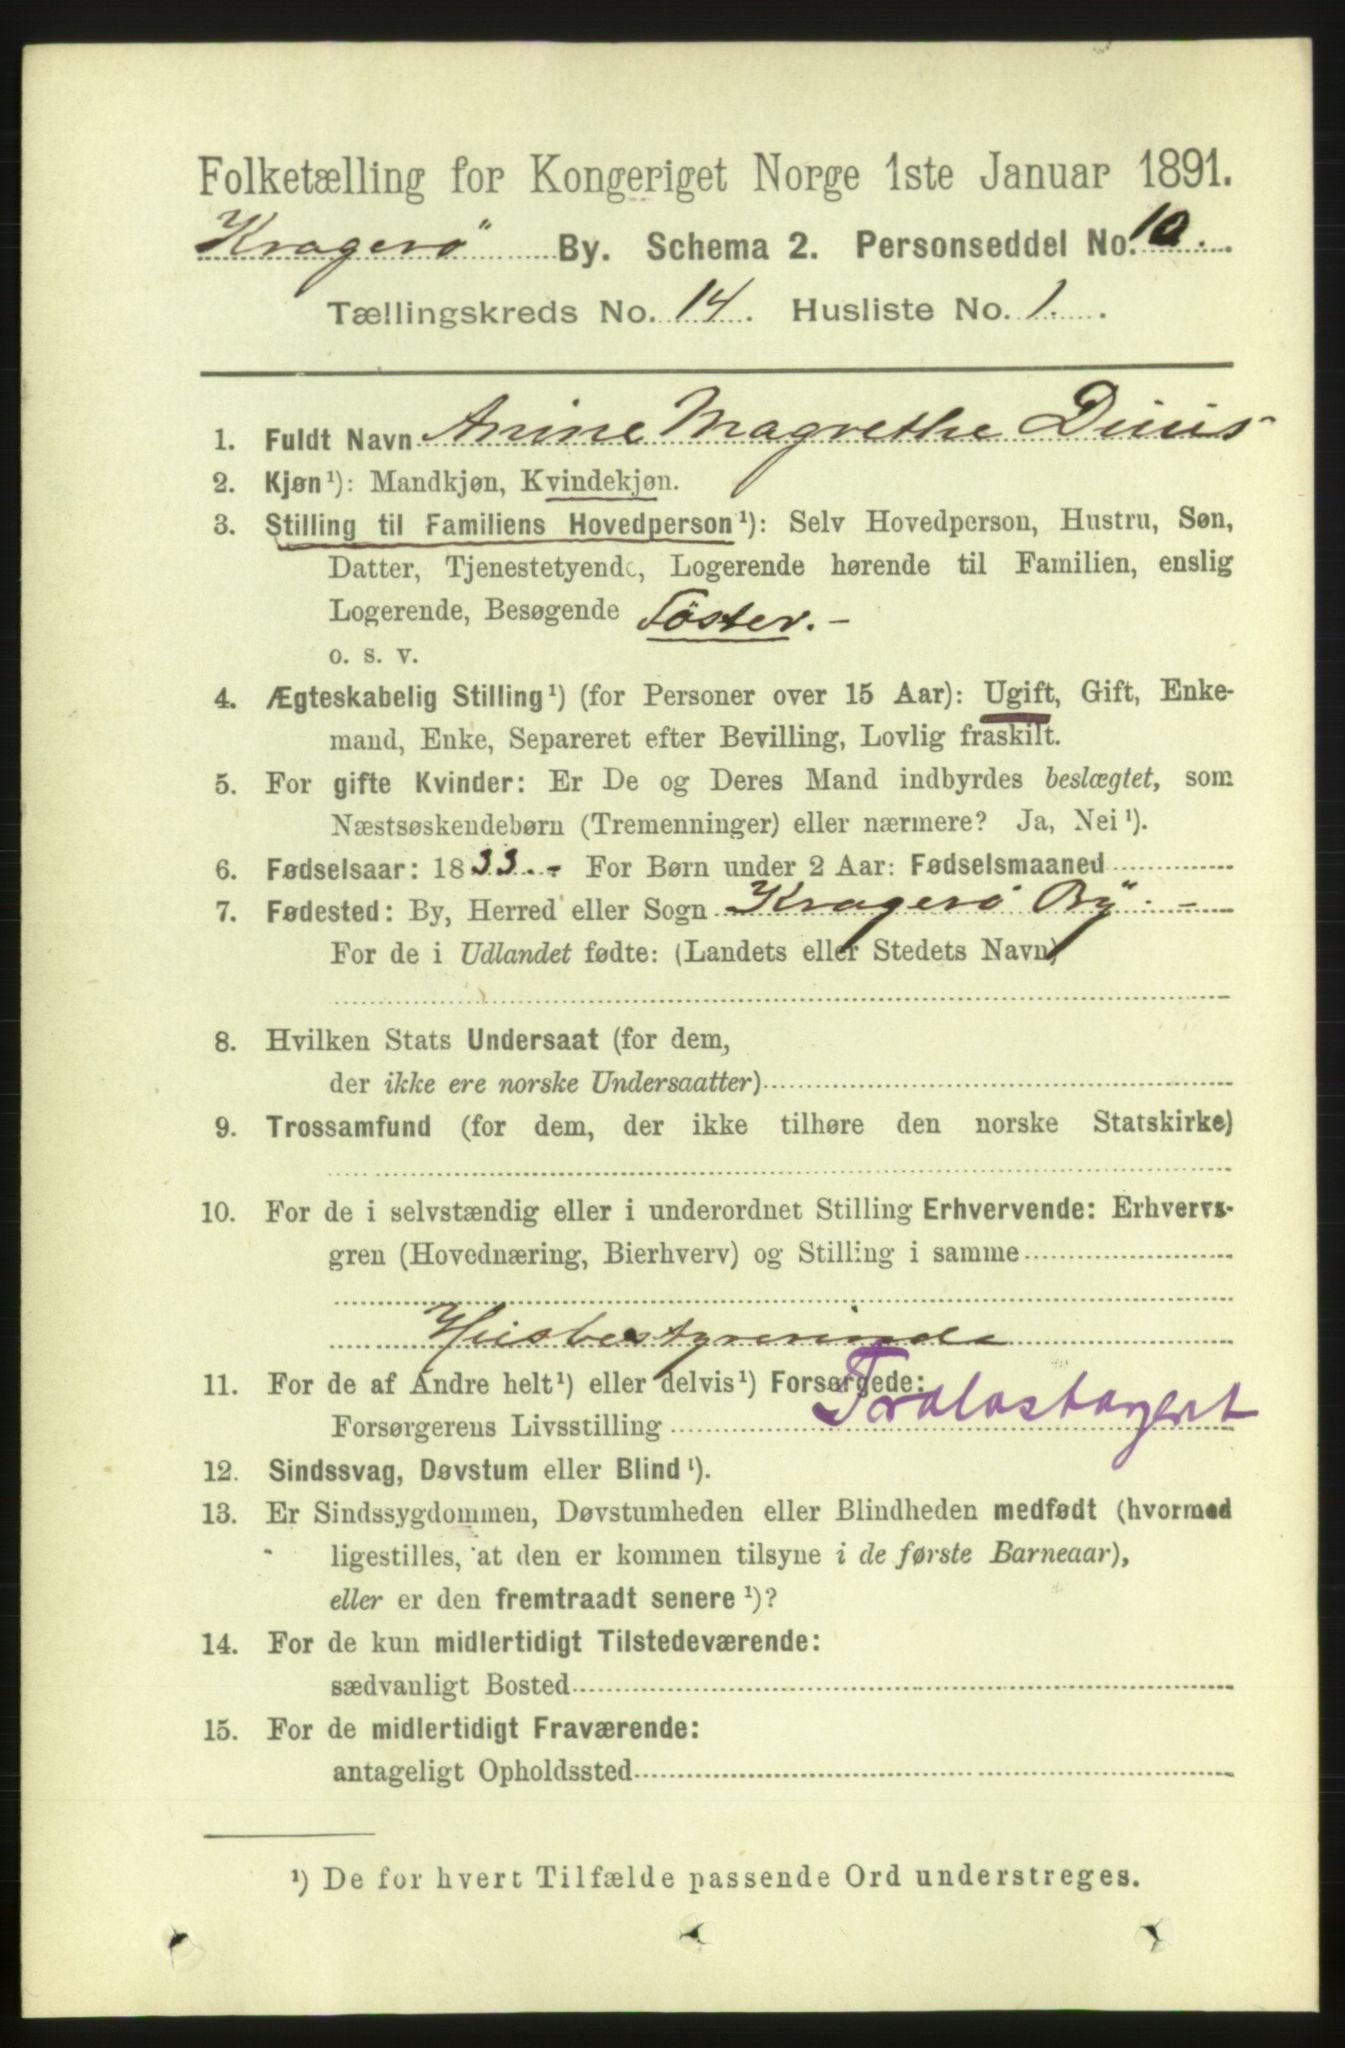 Folketælling for Kongeriget Norge 1ste Januar 1891.
Kragerö By. Schema 2. Personseddel No. 10.
Tællingskreds No. 14. Husliste No. 1.
1. Fuldt Navn Anine Magrethe Dius
2. Kjøn¹): Mandkjøn, Kvindekjøn.
3. Stilling til Familiens Hovedperson¹): Selv Hovedperson, Hustru, Søn,
Datter, Tjenestetyende, Logerende hørende til Familien, enslig
Logerende, Besøgende Töster.-
o. s. v.
4. Ægteskabelig Stilling¹) (for Personer over 15 Aar): Ugift, Gift, Enke-
mand, Enke, Separeret efter Bevilling, Lovlig fraskilt.
5. For gifte Kvinder: Er De og Deres Mand indbyrdes beslægtet, som
Næstsøskendebørn (Tremenninger) eller nærmere? Ja, Nei¹).
6. Fødselsaar: 1833.- For Børn under 2 Aar: Fødselsmaaned
7. Fødested: By, Herred eller Sogn Kragerö By.-
For de i Udlandet fødte: (Landets eller Stedets Navn)
8. Hvilken Stats Undersaat (for dem,
der ikke ere norske Undersaatter)
9. Trossamfund (for dem, der ikke tilhøre den norske Statskirke)
10. For de i selvstændig eller i underordnet Stilling Erhvervende: Erhvervs-
gren (Hovednæring, Bierhverv) og Stilling i samme
Huisbestyrerinde
11. For de af Andre helt¹) eller delvis¹) Forsørgede:
Forsørgerens Livsstilling
12. Sindssvag, Døvstum eller Blind¹).
13. Er Sindssygdommen, Døvstumheden eller Blindheden medfødt (hvormed
ligestilles, at den er kommen tilsyne i de første Barneaar),
eller er den fremtraadt senere¹)?
14. For de kun midlertidigt Tilstedeværende:
sædvanligt Bosted
15. For de midlertidigt Fraværende:
antageligt Opholdssted
¹) De for hvert Tilfælde passende Ord understreges.